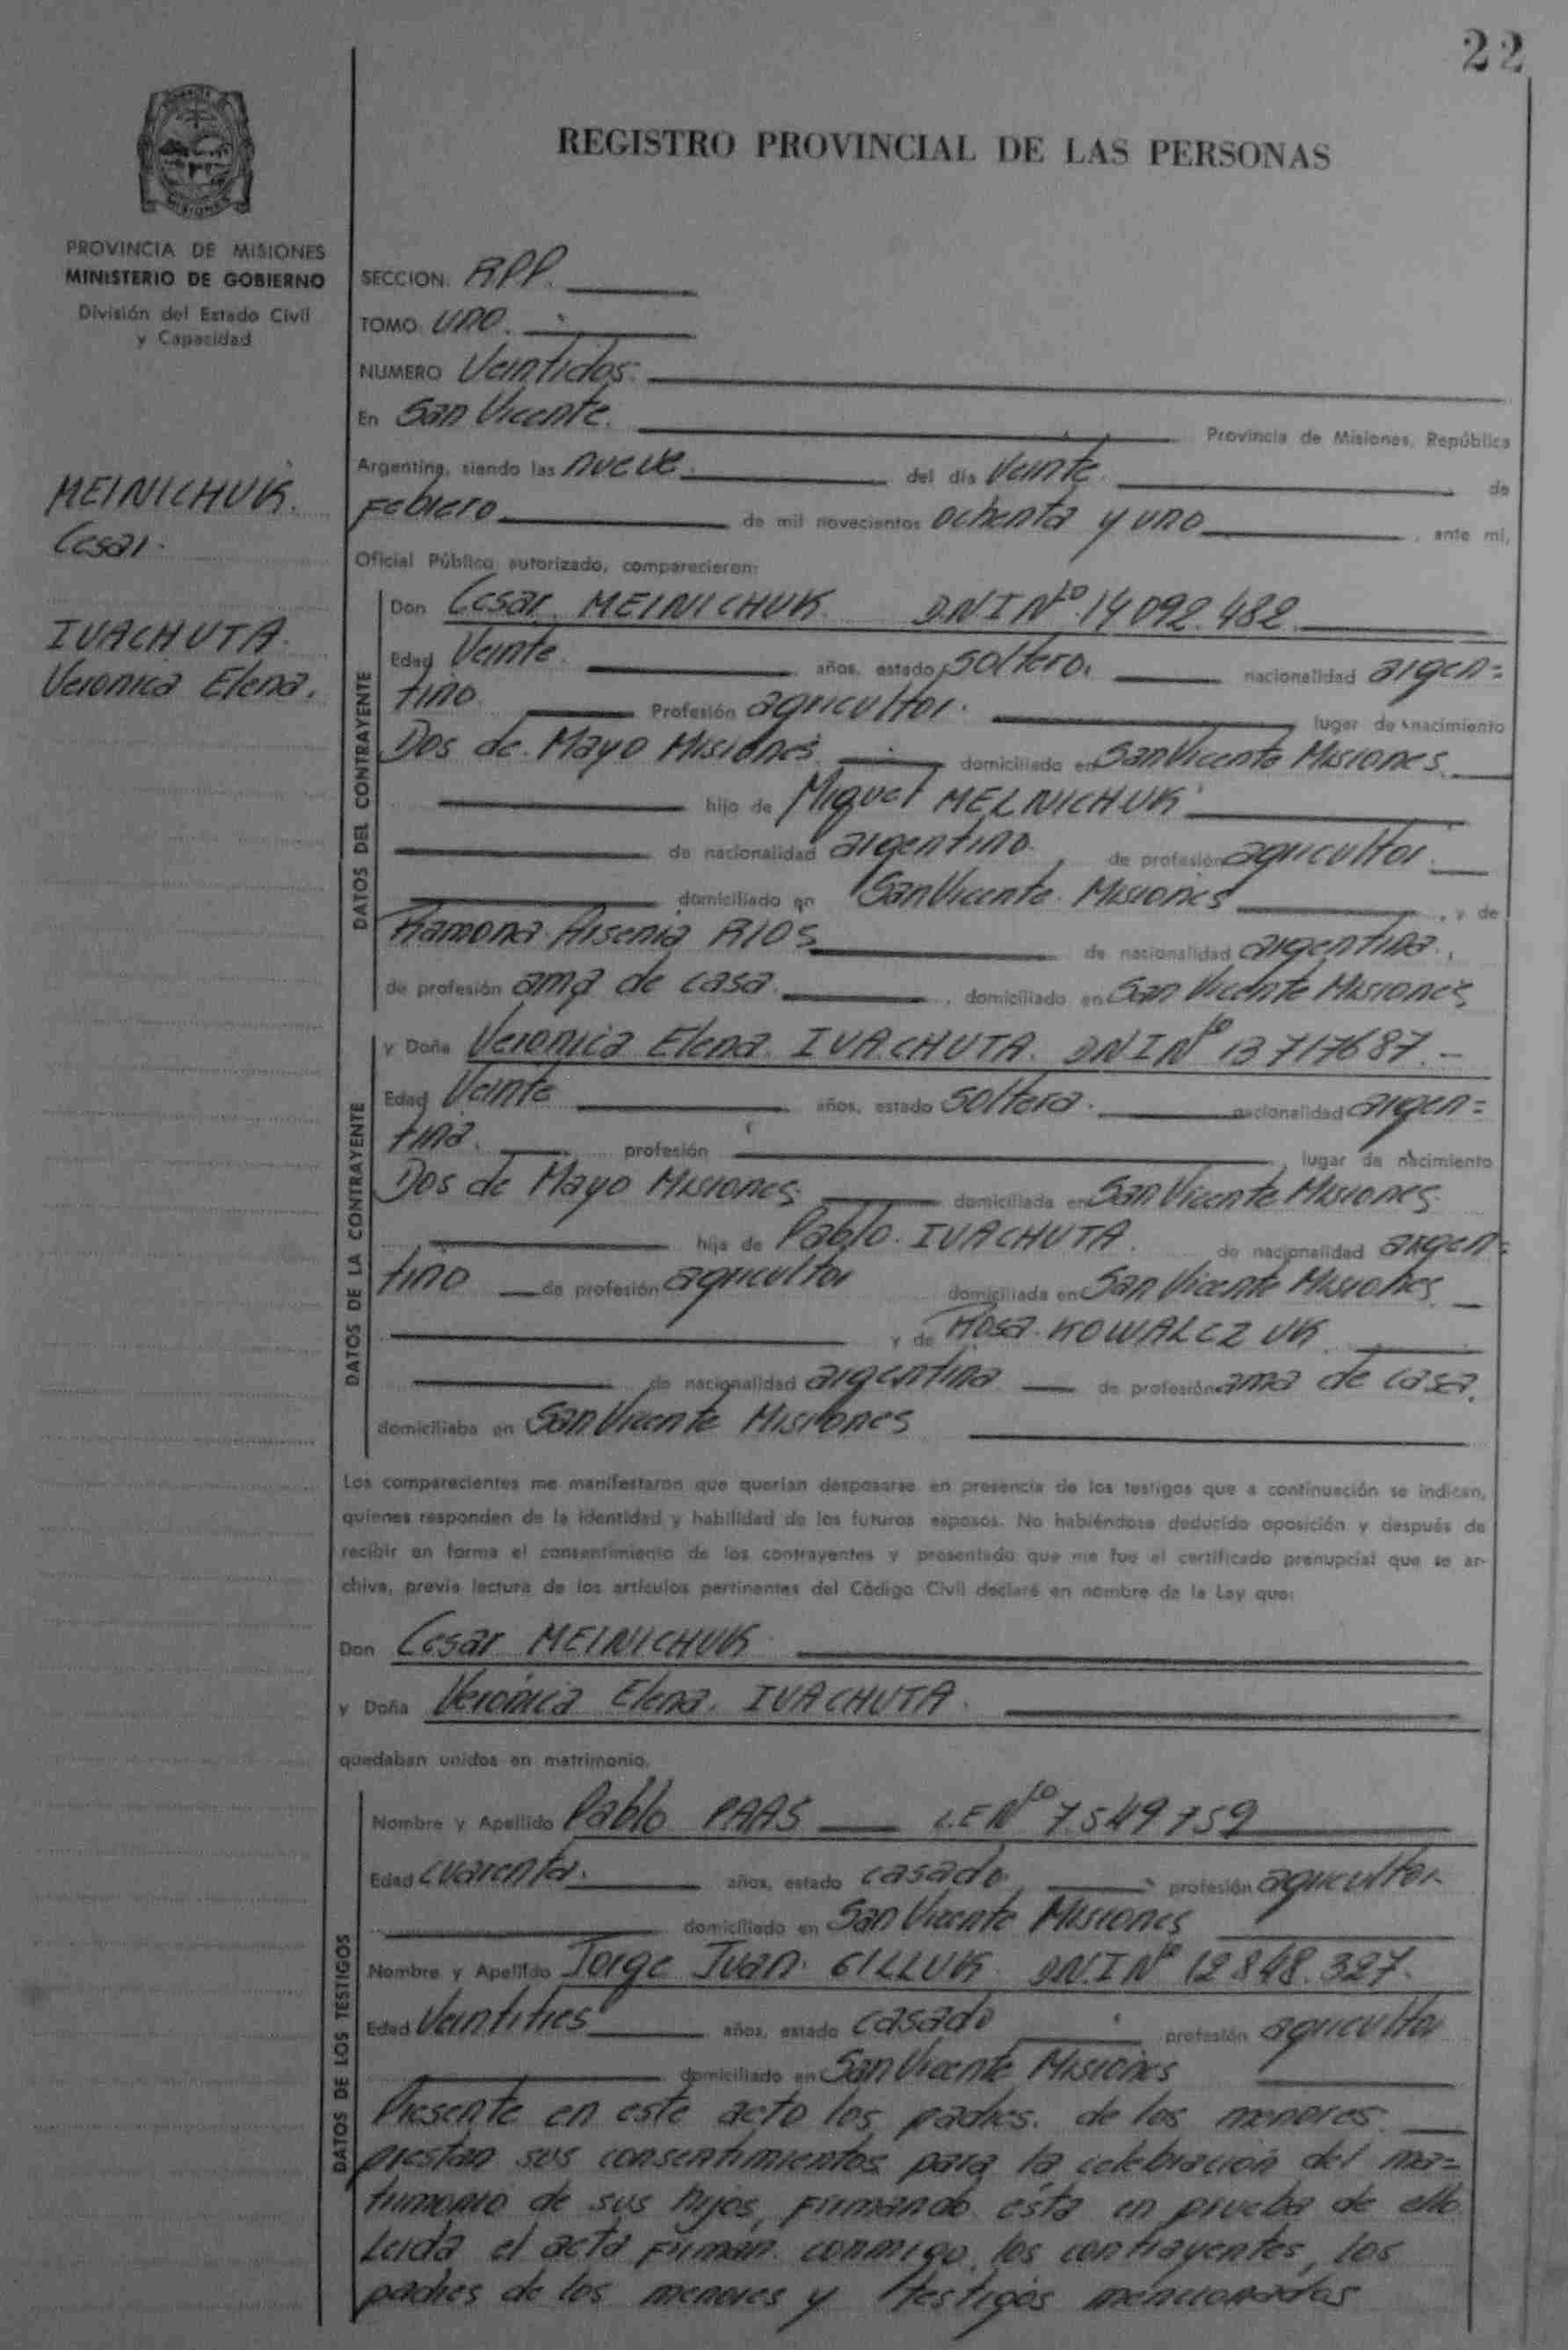 22
REGISTRO PROVINCIAL DE LAS PERSONAS
MISIONES
PROVINCIA DE MISIONES
MINISTERIO DE GOBIERNO
División del Estado Civil
y Capacidad
SECCION. RPP.
TOMO UNO.
NUMERO Veintidos.
En San Vicente. Provincia de Misiones, República
Argentina, siendo las nueve. del día Veinte. de
Febrero de mil novecientos ochenta y uno, ante mi,
Oficial Público autorizado, comparecieron:
MEINICHUK.
Cesar.
IVACHUTA.
Veronica Elena.
DATOS DEL CONTRAYENTE
Don Cesar MEINICHUK. D.N.I Nº 14.092.482
Edad Veinte. años, estado soltero. nacionalidad argen=
tino. Profesión agricultor. lugar de nacimiento
Dos de Mayo Misiones domiciliado en San Vicente Misiones
hijo de Miguel MELNICHUK
de nacionalidad argentino, de profesión agricultor.
domiciliado en San Vicente Misiones, y de
Ramona Arsenia RIOS de nacionalidad argentina.,
de profesión ama de casa., domiciliado en San Vicente Misiones
DATOS DE LA CONTRAYENTE
y Doña Veronica Elena. IVACHUTA. DNI Nº 13717687.-
Edad Veinte años, estado soltera. nacionalidad argen=
tina. profesión lugar de nacimiento
Dos de Mayo Misiones domiciliada en San Vicente Misiones.
hija de Pablo. IVACHUTA. de nacionalidad argen=
tino de profesión agricultor domiciliada en San Vicente Misiones
y de Rosa KOWALCZUK
de nacionalidad argentina de profesión ama de casa.
domiciliaba en San Vicente Misiones
Los comparecientes me manifestaron que querían desposarse en presencia de los testigos que a continuación se indican,
quienes responden de la identidad y habilidad de los futuros esposos. No habiéndose deducido oposición y después de
recibir en forma el consentimiento de los contrayentes y presentado que me fue el certificado prenupcial que se ar-
chiva, previa lectura de los artículos pertinentes del Código Civil declaré en nombre de la Ley que:
Don Cesar MEINICHUK
y Doña Veronica Elena. IVACHUTA.
quedaban unidos en matrimonio.
DATOS DE LOS TESTIGOS
Nombre y Apellido Pablo PAAS L.E Nº 7.549759
Edad cuarenta. años, estado casado profesión agricultor
domiciliado en San Vicente Misiones
Nombre y Apellido Jorge Juan. GILLUK DN.I Nº 12.848.327.
Edad Veintitres años, estado casado profesión agricultor
domiciliado en San Vicente Misiones
Presente en este acto los padres. de los menores.
prestan sus consentimientos para la celebracion del ma=
trimonio de sus hijos, Firmando ésta en prueba de ello
Leida el acta Firman. conmigo, los contrayentes, los
padres de los menores y testigos mencionados